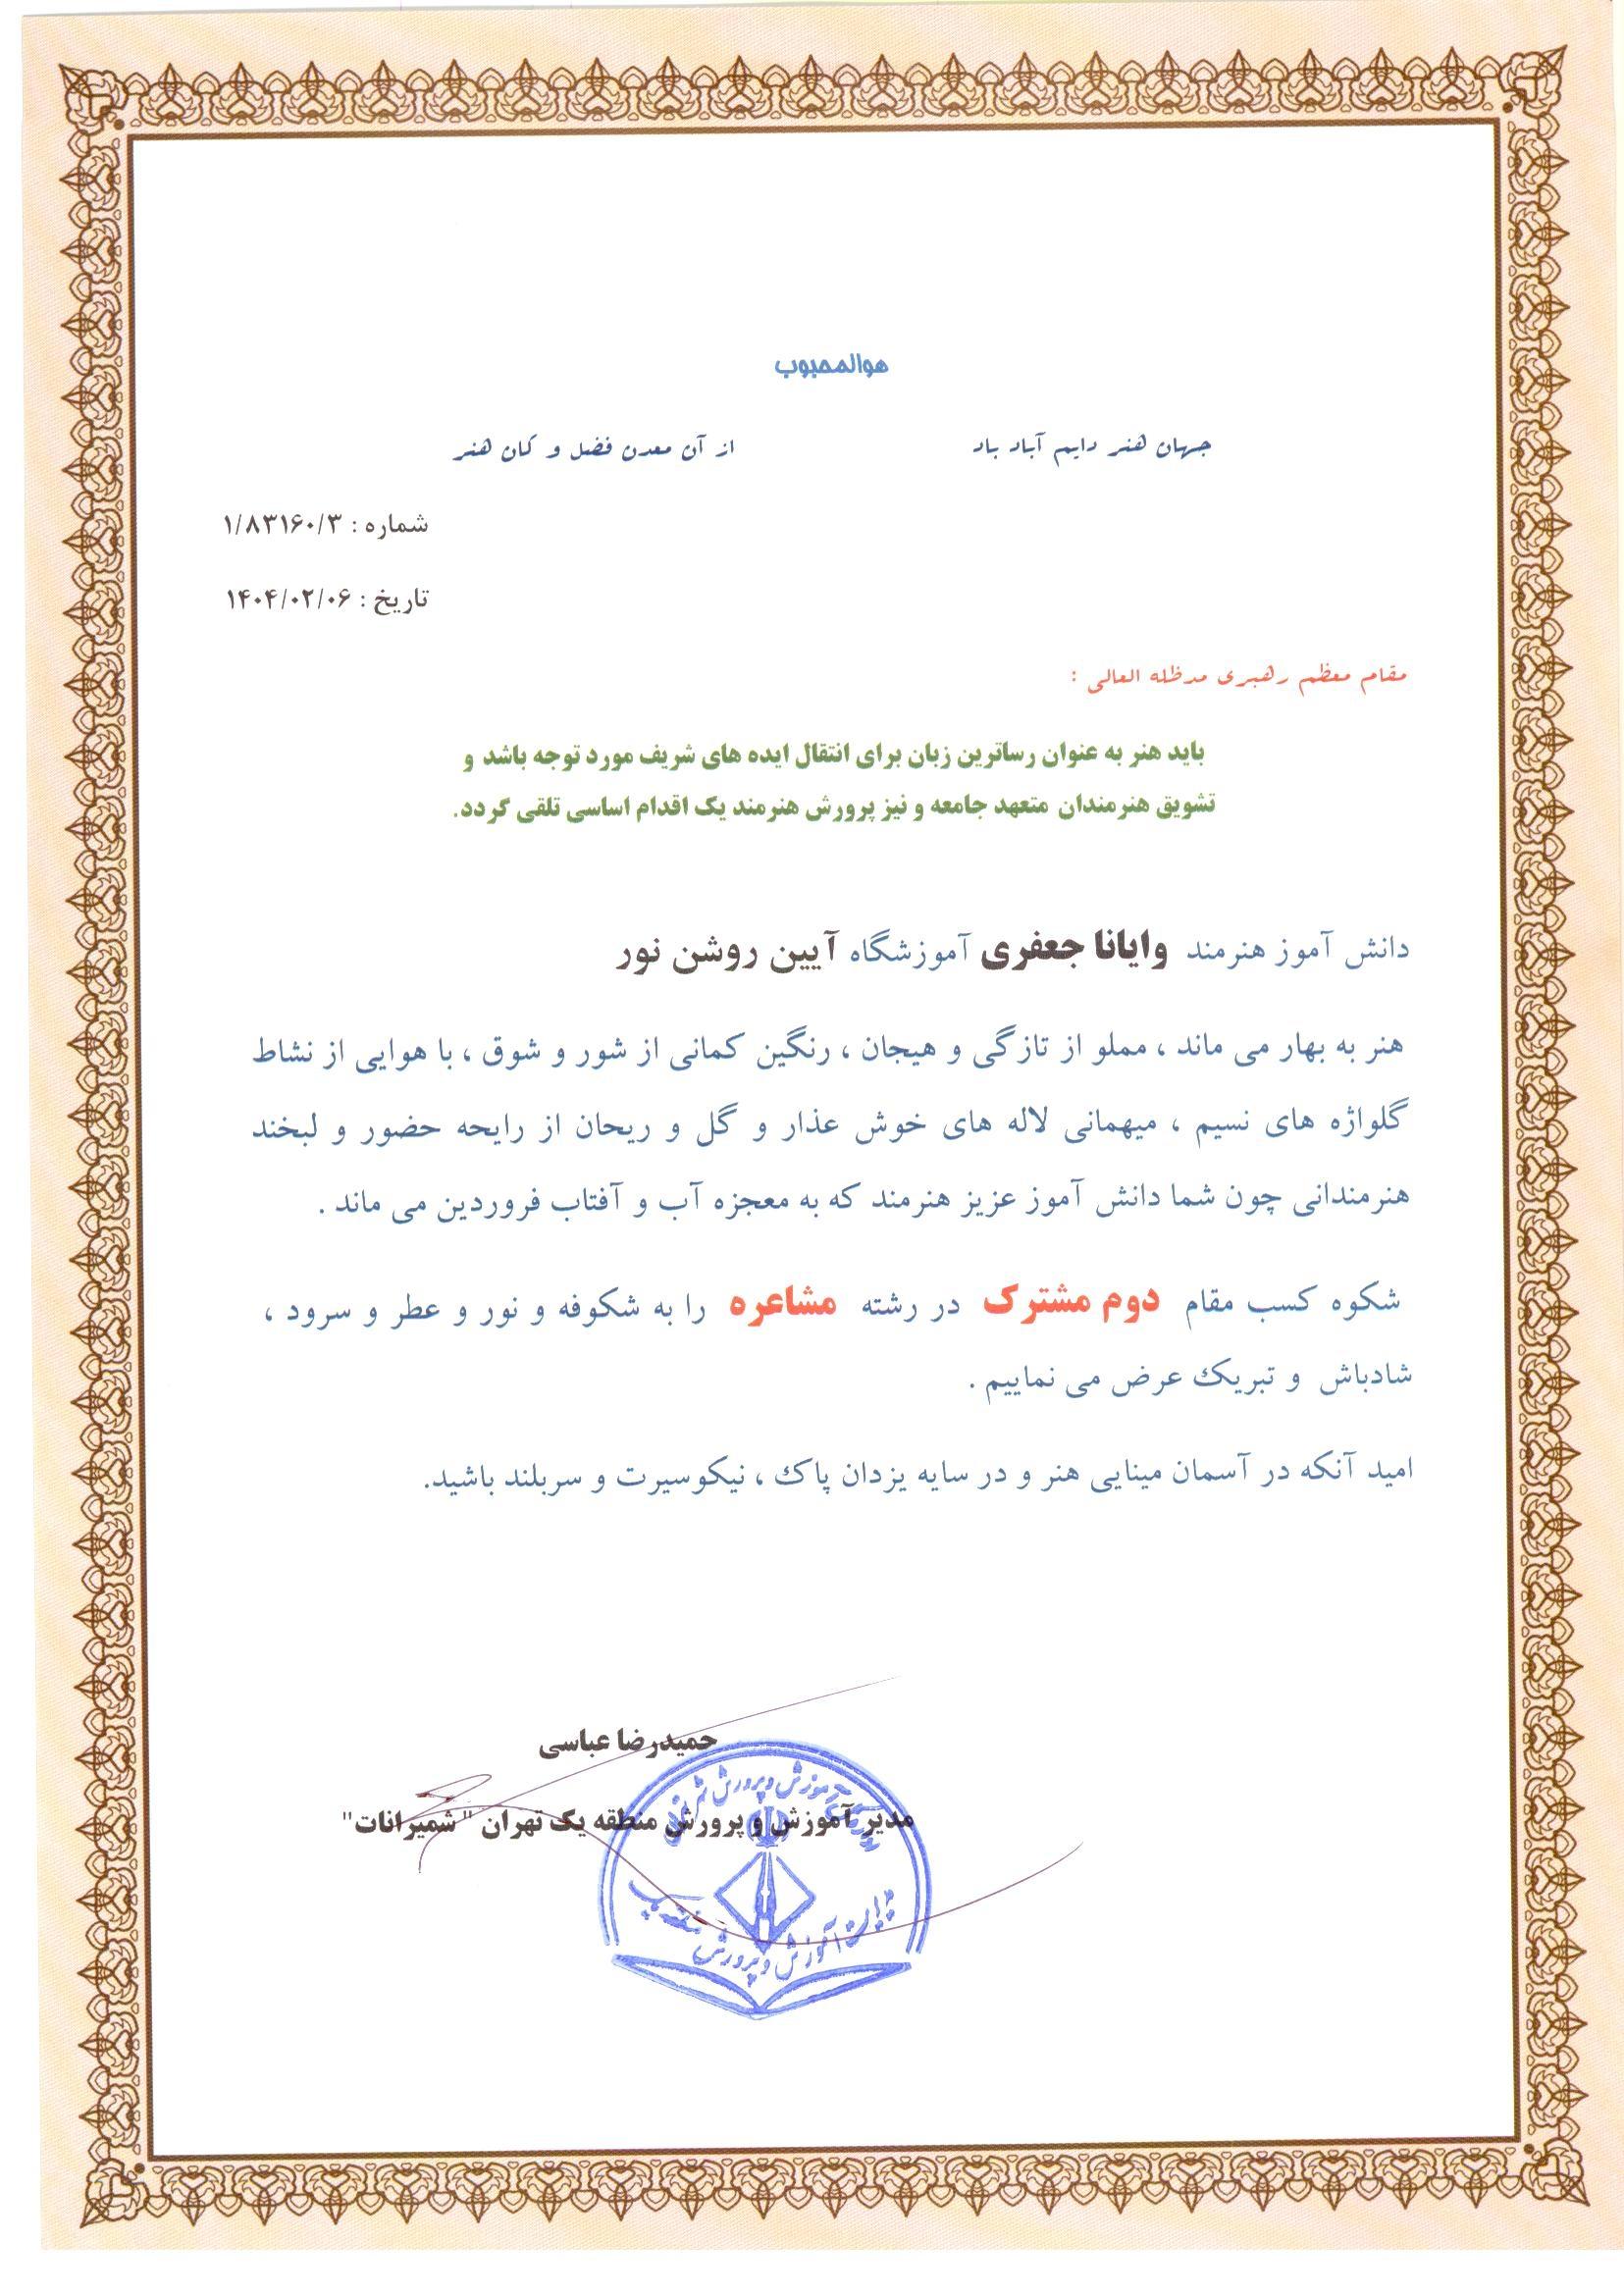 هوالمحبوب
جهان هنر دایم آباد باد از آن معدن فضل و کان هنر
شماره : ۱/۸۳۱۶۰/۳
تاریخ : ۱۴۰۴/۰۲/۰۶
مقام معظم رهبری مدظله العالی :
باید هنر به عنوان رساترین زبان برای انتقال ایده های شریف مورد توجه باشد و
تشویق هنرمندان متعهد جامعه و نیز پرورش هنرمند یک اقدام اساسی تلقی گردد.
دانش آموز هنرمند وایانا جعفری آموزشگاه آیین روشن نور
هنر به بهار می ماند ، مملو از تازگی و هیجان ، رنگین کمانی از شور و شوق ، با هوایی از نشاط
گلواژه های نسیم ، میهمانی لاله های خوش عذار و گل و ریحان از رایحه حضور و لبخند
هنرمندانی چون شما دانش آموز عزیز هنرمند که به معجزه آب و آفتاب فروردین می ماند .
شکوه کسب مقام دوم مشترک در رشته مشاعره را به شکوفه و نور و عطر و سرود ،
شادباش و تبریک عرض می نماییم .
امید آنکه در آسمان مینایی هنر و در سایه یزدان پاک ، نیکوسیرت و سربلند باشید.
حمیدرضا عباسی
مدیر آموزش و پرورش منطقه یک تهران "شمیرانات"
آموزش و پرورش
آموزش و پرورش